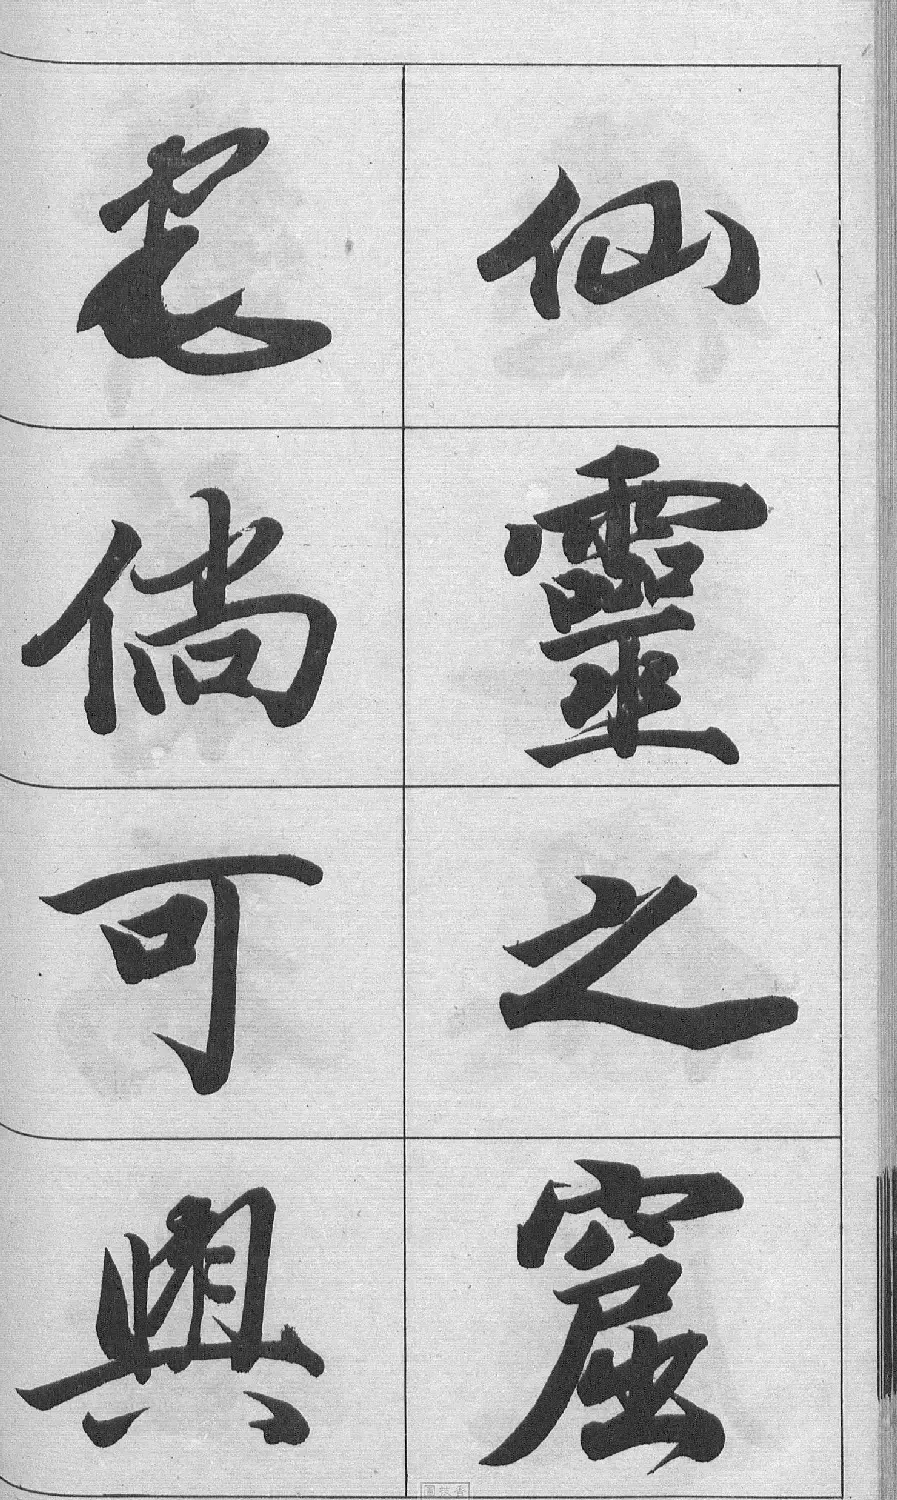 仙靈之窟
宅倘可興